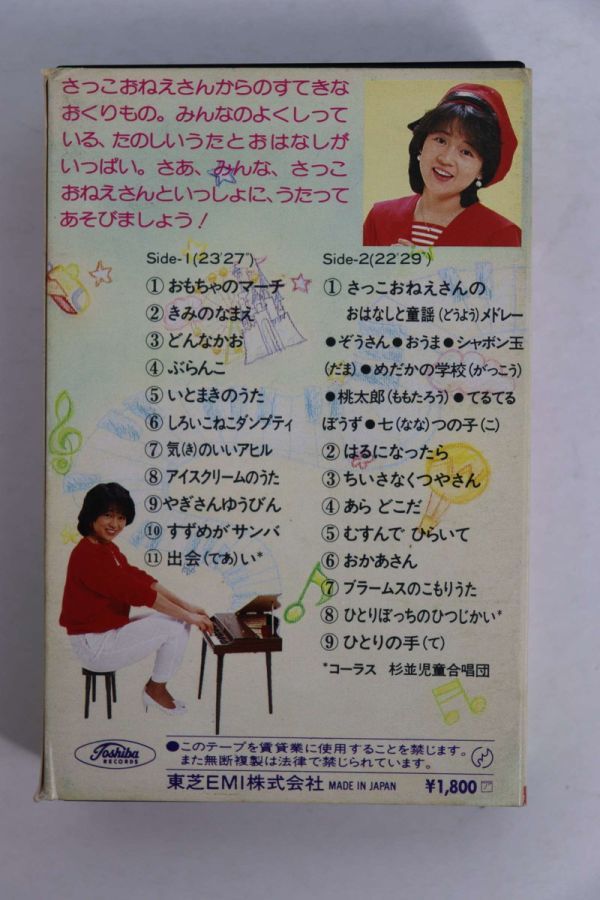 さっこおねえさんからのすてきな
おくりもの。みんなのよくしって
いる、たのしいうたとおはなしが
いっぱい。さあ、みんな、さっこ
おねえさんといっしょに、うたって
あそびましょう!
Side-1(23'27")
①おもちゃのマーチ
②きみのなまえ
③どんなかお
④ぶらんこ
⑤いとまきのうた
⑥しろいこねこダンプティ
⑦気(き)のいいアヒル
⑧アイスクリームのうた
⑨やぎさんゆうびん
⑩すずめがサンバ
⑪出会(であ)い*
Side-2(22'29")
①さっこおねえさんの
おはなしと童謡(どうよう)メドレー
●ぞうさん●おうま●シャボン玉
(だま)●めだかの学校(がっこう)
●桃太郎(ももたろう)●てるてる
ぼうず●七(なな)つの子(こ)
②はるになったら
③ちいさなくつやさん
④あら どこだ
⑤むすんで ひらいて
⑥おかあさん
⑦ブラームスのこもりうた
⑧ひとりぼっちのひつじかい*
⑨ひとりの手(て)
*コーラス 杉並児童合唱団
Toshiba
RECORDS
●このテープを賃貸業に使用することを禁じます。
また無断複製は法律で禁じられています。
東芝EMI株式会社 MADE IN JAPAN ¥1,800